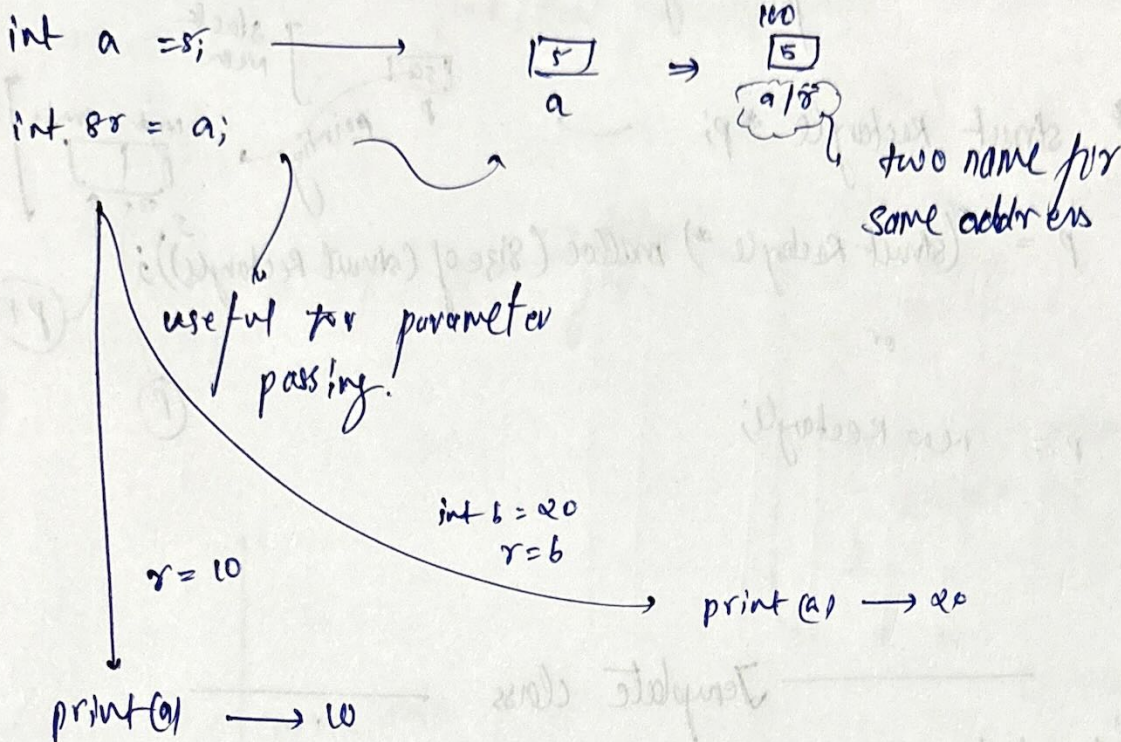 int a =5;
5
a
⇒
100
5
a/r
int &r = a;
two name for
same address
useful for parameter
passing.
int b = 20
r=b
r = 10
print(a) → 20
print(a) → 10